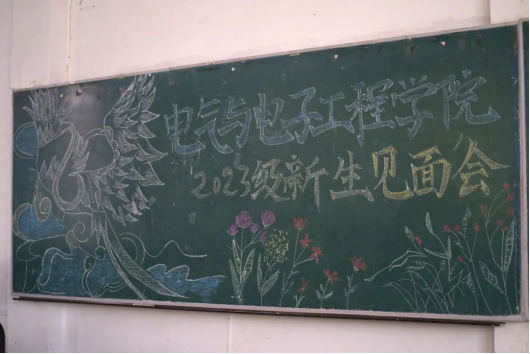 电气与电子工程学院
2023级新生见面会